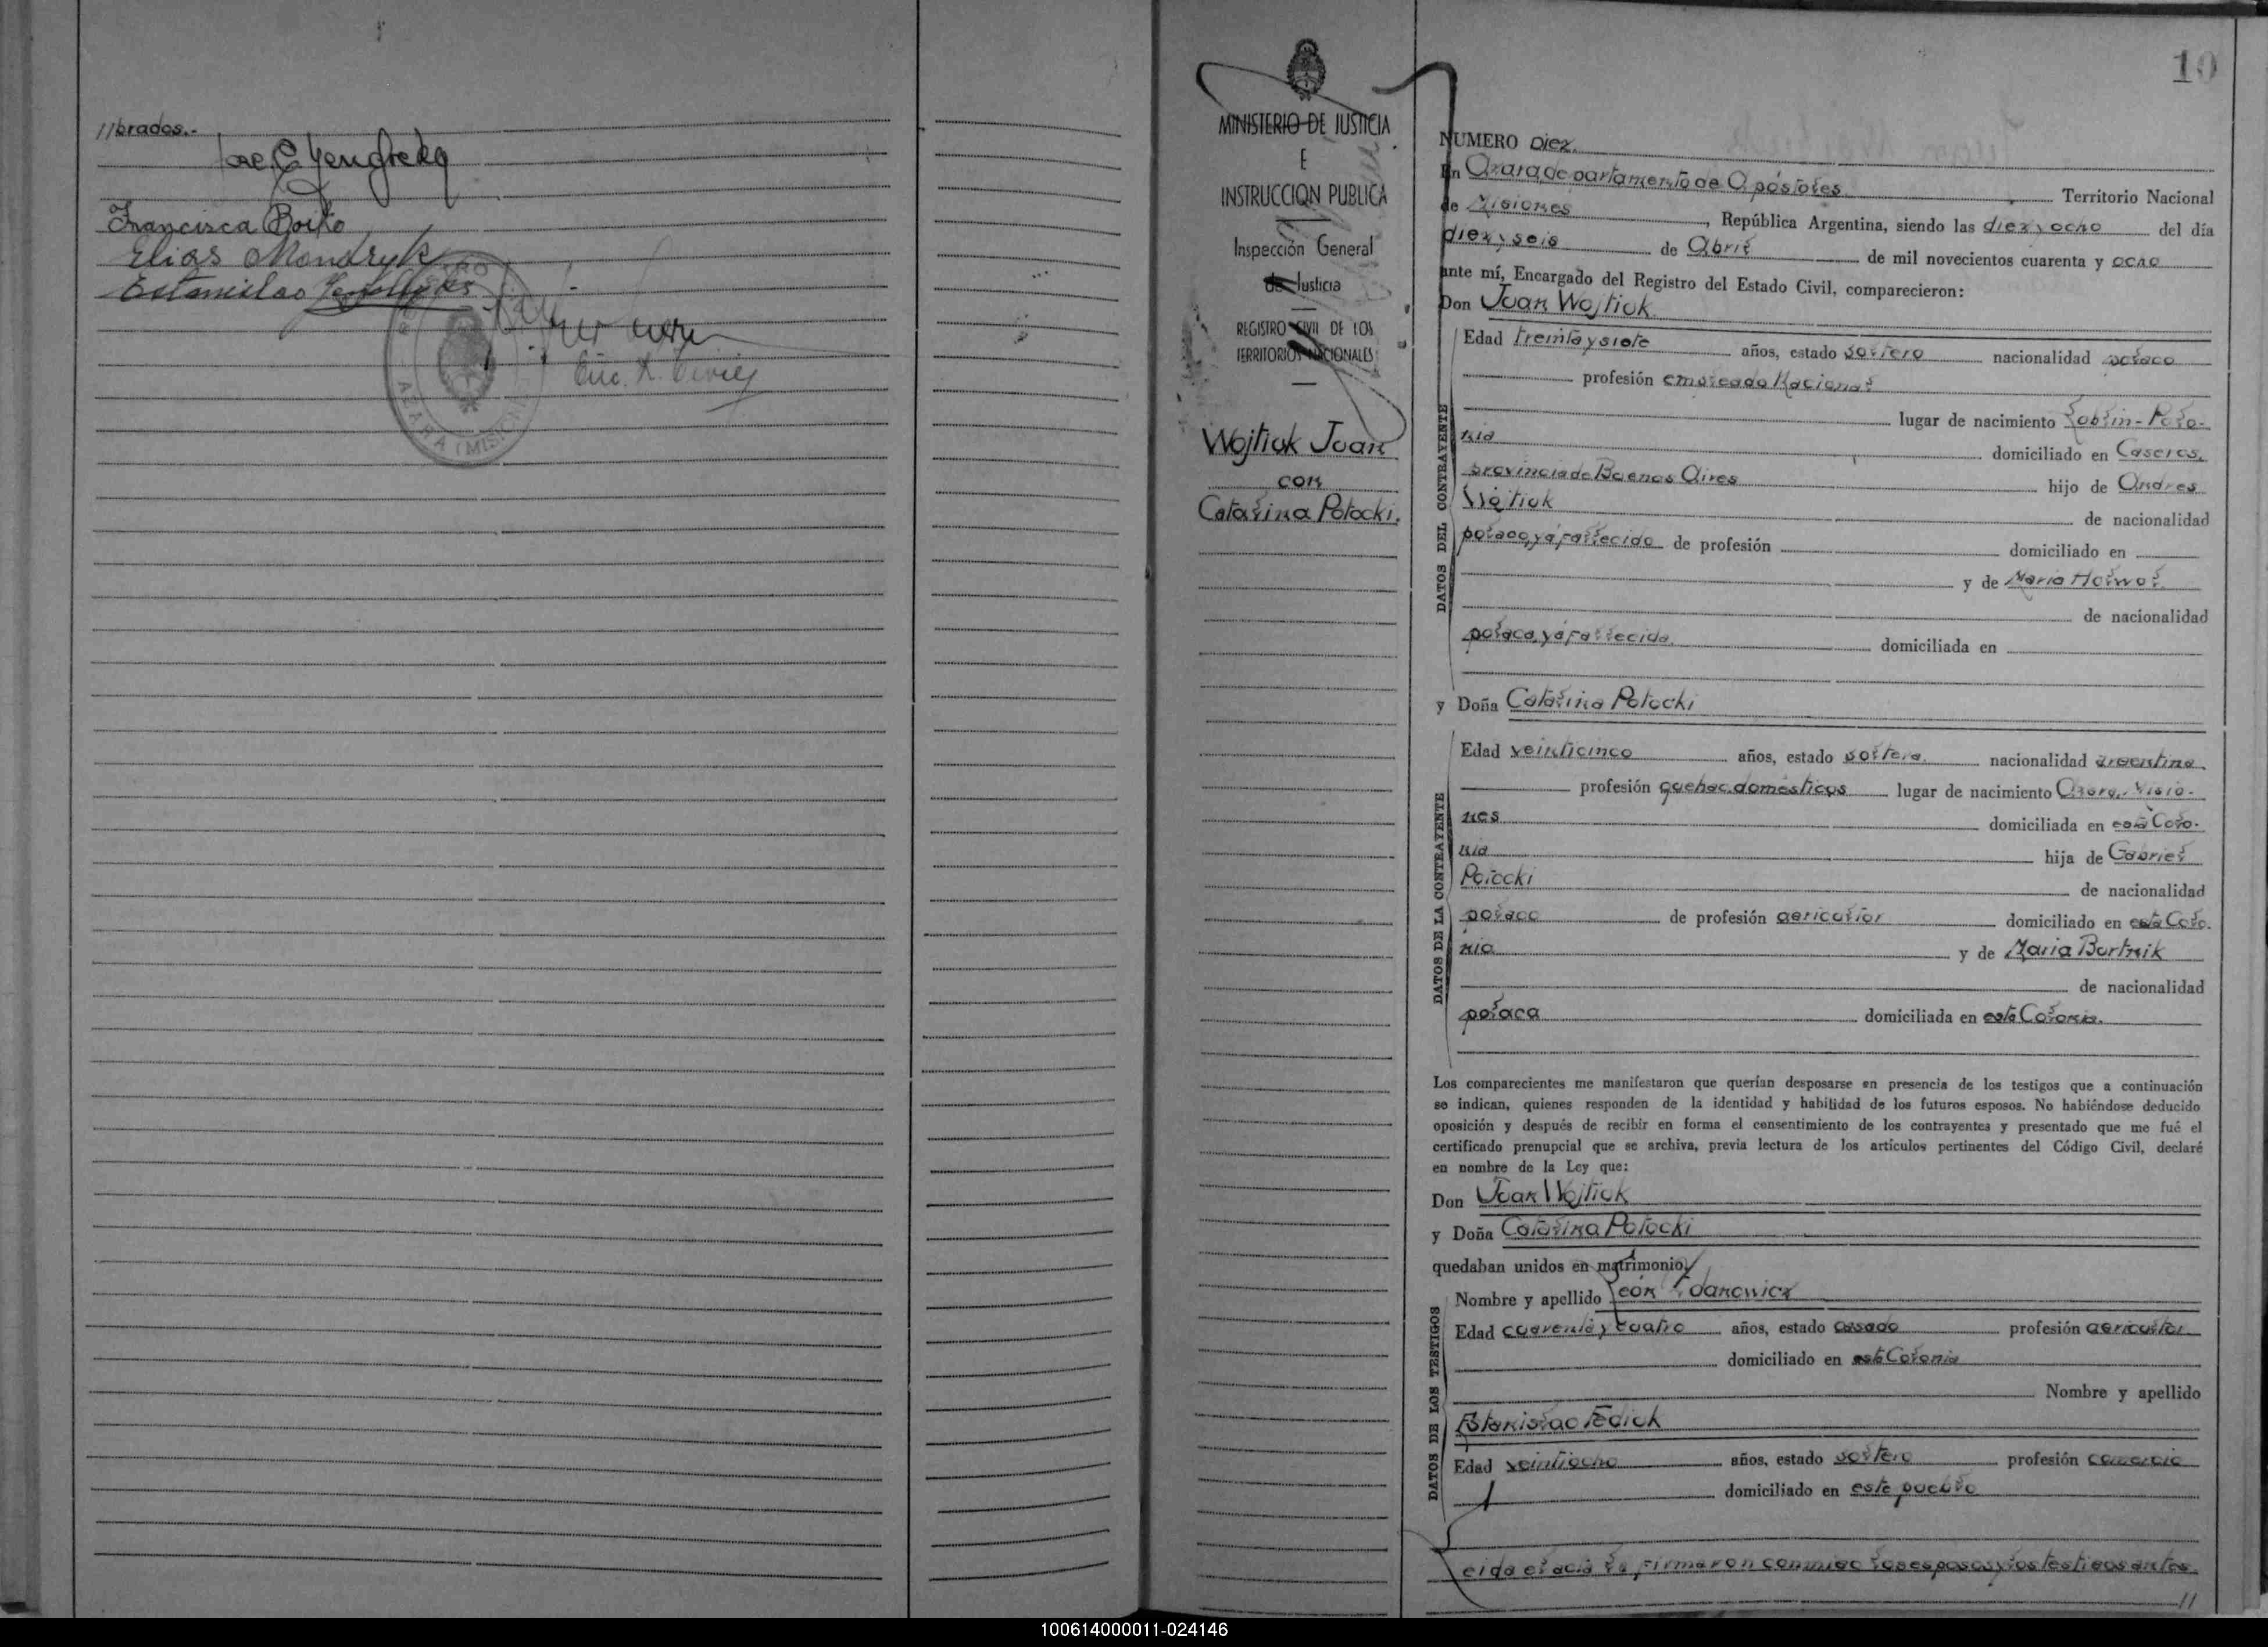 //brados.-
Francisca Boiko
Elias Mondryk
Estanislao
AZARA (MISIONES)
10
MINISTERIO DE JUSTICIA
E
INSTRUCCION PUBLICA
Inspección General
de Justicia
REGISTRO CIVIL DE LOS
TERRITORIOS NACIONALES
Wojtiuk Juan
con
Catalina Potocki.
NUMERO Diez.
En Azara, departamento de Apóstoles Territorio Nacional
de Misiones, República Argentina, siendo las diez y ocho del día
diez y seis de Abril de mil novecientos cuarenta y ocho
ante mí, Encargado del Registro del Estado Civil, comparecieron:
Don Juan Wojtiuk.
DATOS DEL CONTRAYENTE
Edad treinta y siete años, estado soltero nacionalidad polaco
profesión empleado Nacional
lugar de nacimiento Loblin - Polo-
nia domiciliado en Caseros,
provincia de Buenos Aires hijo de Andres
Wojtiuk de nacionalidad
polaco, ya fallecido de profesión domiciliado en
y de Maria Holwol.
de nacionalidad
polaca, ya fallecida. domiciliada en
y Doña Catalina Potocki
DATOS DE LA CONTRAYENTE
Edad veinticinco años, estado soltera. nacionalidad argentina.
profesión quehac. domésticos lugar de nacimiento Azara, Misio-
nes domiciliada en esta Colo-
nia hija de Gabriel
Potocki de nacionalidad
polaco de profesión agricultor domiciliado en esta Colo-
nia y de Maria Bortnik
de nacionalidad
polaca domiciliada en esta Colonia.
Los comparecientes me manifestaron que querían desposarse en presencia de los testigos que a continuación
se indican, quienes responden de la identidad y habilidad de los futuros esposos. No habiéndose deducido
oposición y después de recibir en forma el consentimiento de los contrayentes y presentado que me fué el
certificado prenupcial que se archiva, previa lectura de los artículos pertinentes del Código Civil, declaré
en nombre de la Ley que:
Don Juan Wojtiuk
y Doña Catalina Potocki
quedaban unidos en matrimonio
DATOS DE LOS TESTIGOS
Nombre y apellido León Zdanowicz
Edad cuarenta y cuatro años, estado casado profesión agricultor
domiciliado en esta Colonia
Nombre y apellido
Estanislao Fediuk
Edad veintiocho años, estado soltero profesión comercio
domiciliado en este pueblo
eida el acta la firmaron conmigo los esposos y los testigos antes
//
100614000011-024146